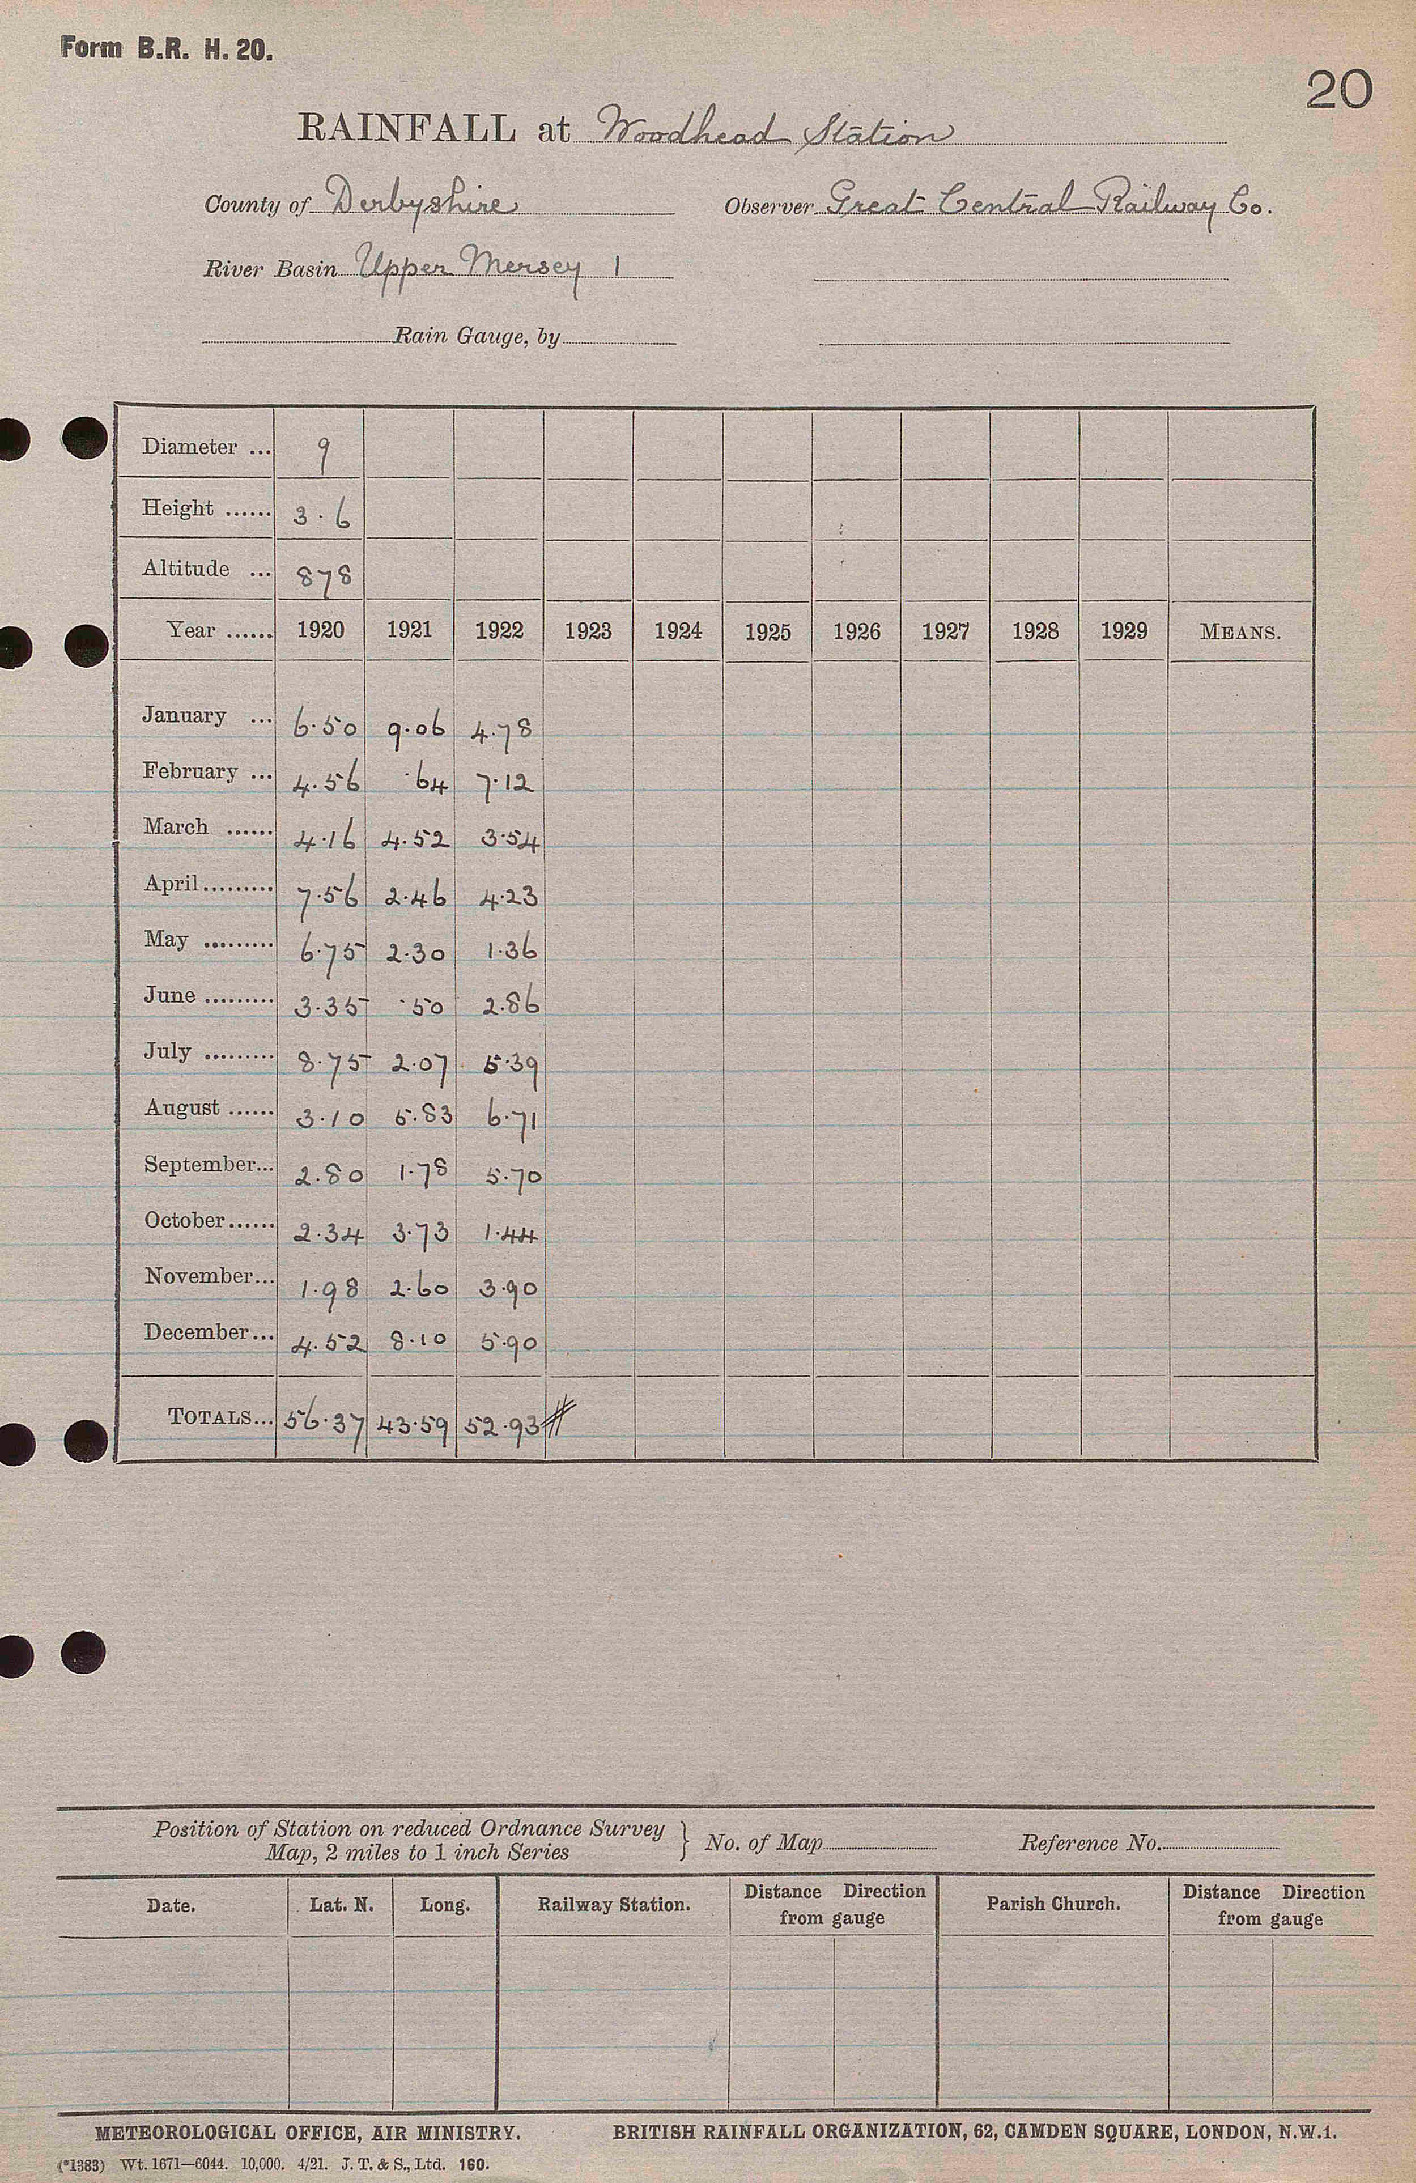 Form B.R. H. 20.
20
RAINFALL at Woodhead Station
County of Derbyshire Observer Great Central Railway Co.
River Basin Upper Mersey 1
Rain Gauge, by
Diameter ... 9
Height ...... 3.6
Altitude ... 878
Year ...... 1920 1921 1922 1923 1924 1925 1926 1927 1928 1929 MEANS.
January ... 6.50 9.06 4.78
February ... 4.56 .64 7.12
March ...... 4.16 4.52 3.54
April......... 7.56 2.46 4.23
May ......... 6.75 2.30 1.36
June ......... 3.35 .50 2.86
July ......... 8.75 2.07 5.39
August ...... 3.10 5.83 6.71
September... 2.80 1.78 5.70
October...... 2.34 3.73 1.44
November... 1.98 2.60 3.90
December... 4.52 8.10 5.90
TOTALS... 56.37 43.59 52.93 #
Position of Station on reduced Ordnance Survey
Map, 2 miles to 1 inch Series } No. of Map Reference No.
Date. Lat. N. Long. Railway Station. Distance Direction from gauge Parish Church. Distance Direction from gauge
METEOROLOGICAL OFFICE, AIR MINISTRY. BRITISH RAINFALL ORGANIZATION, 62, CAMDEN SQUARE, LONDON, N.W.1.
(*1383) Wt. 1671—6044. 10,000. 4/21. J. T. & S., Ltd. 160.